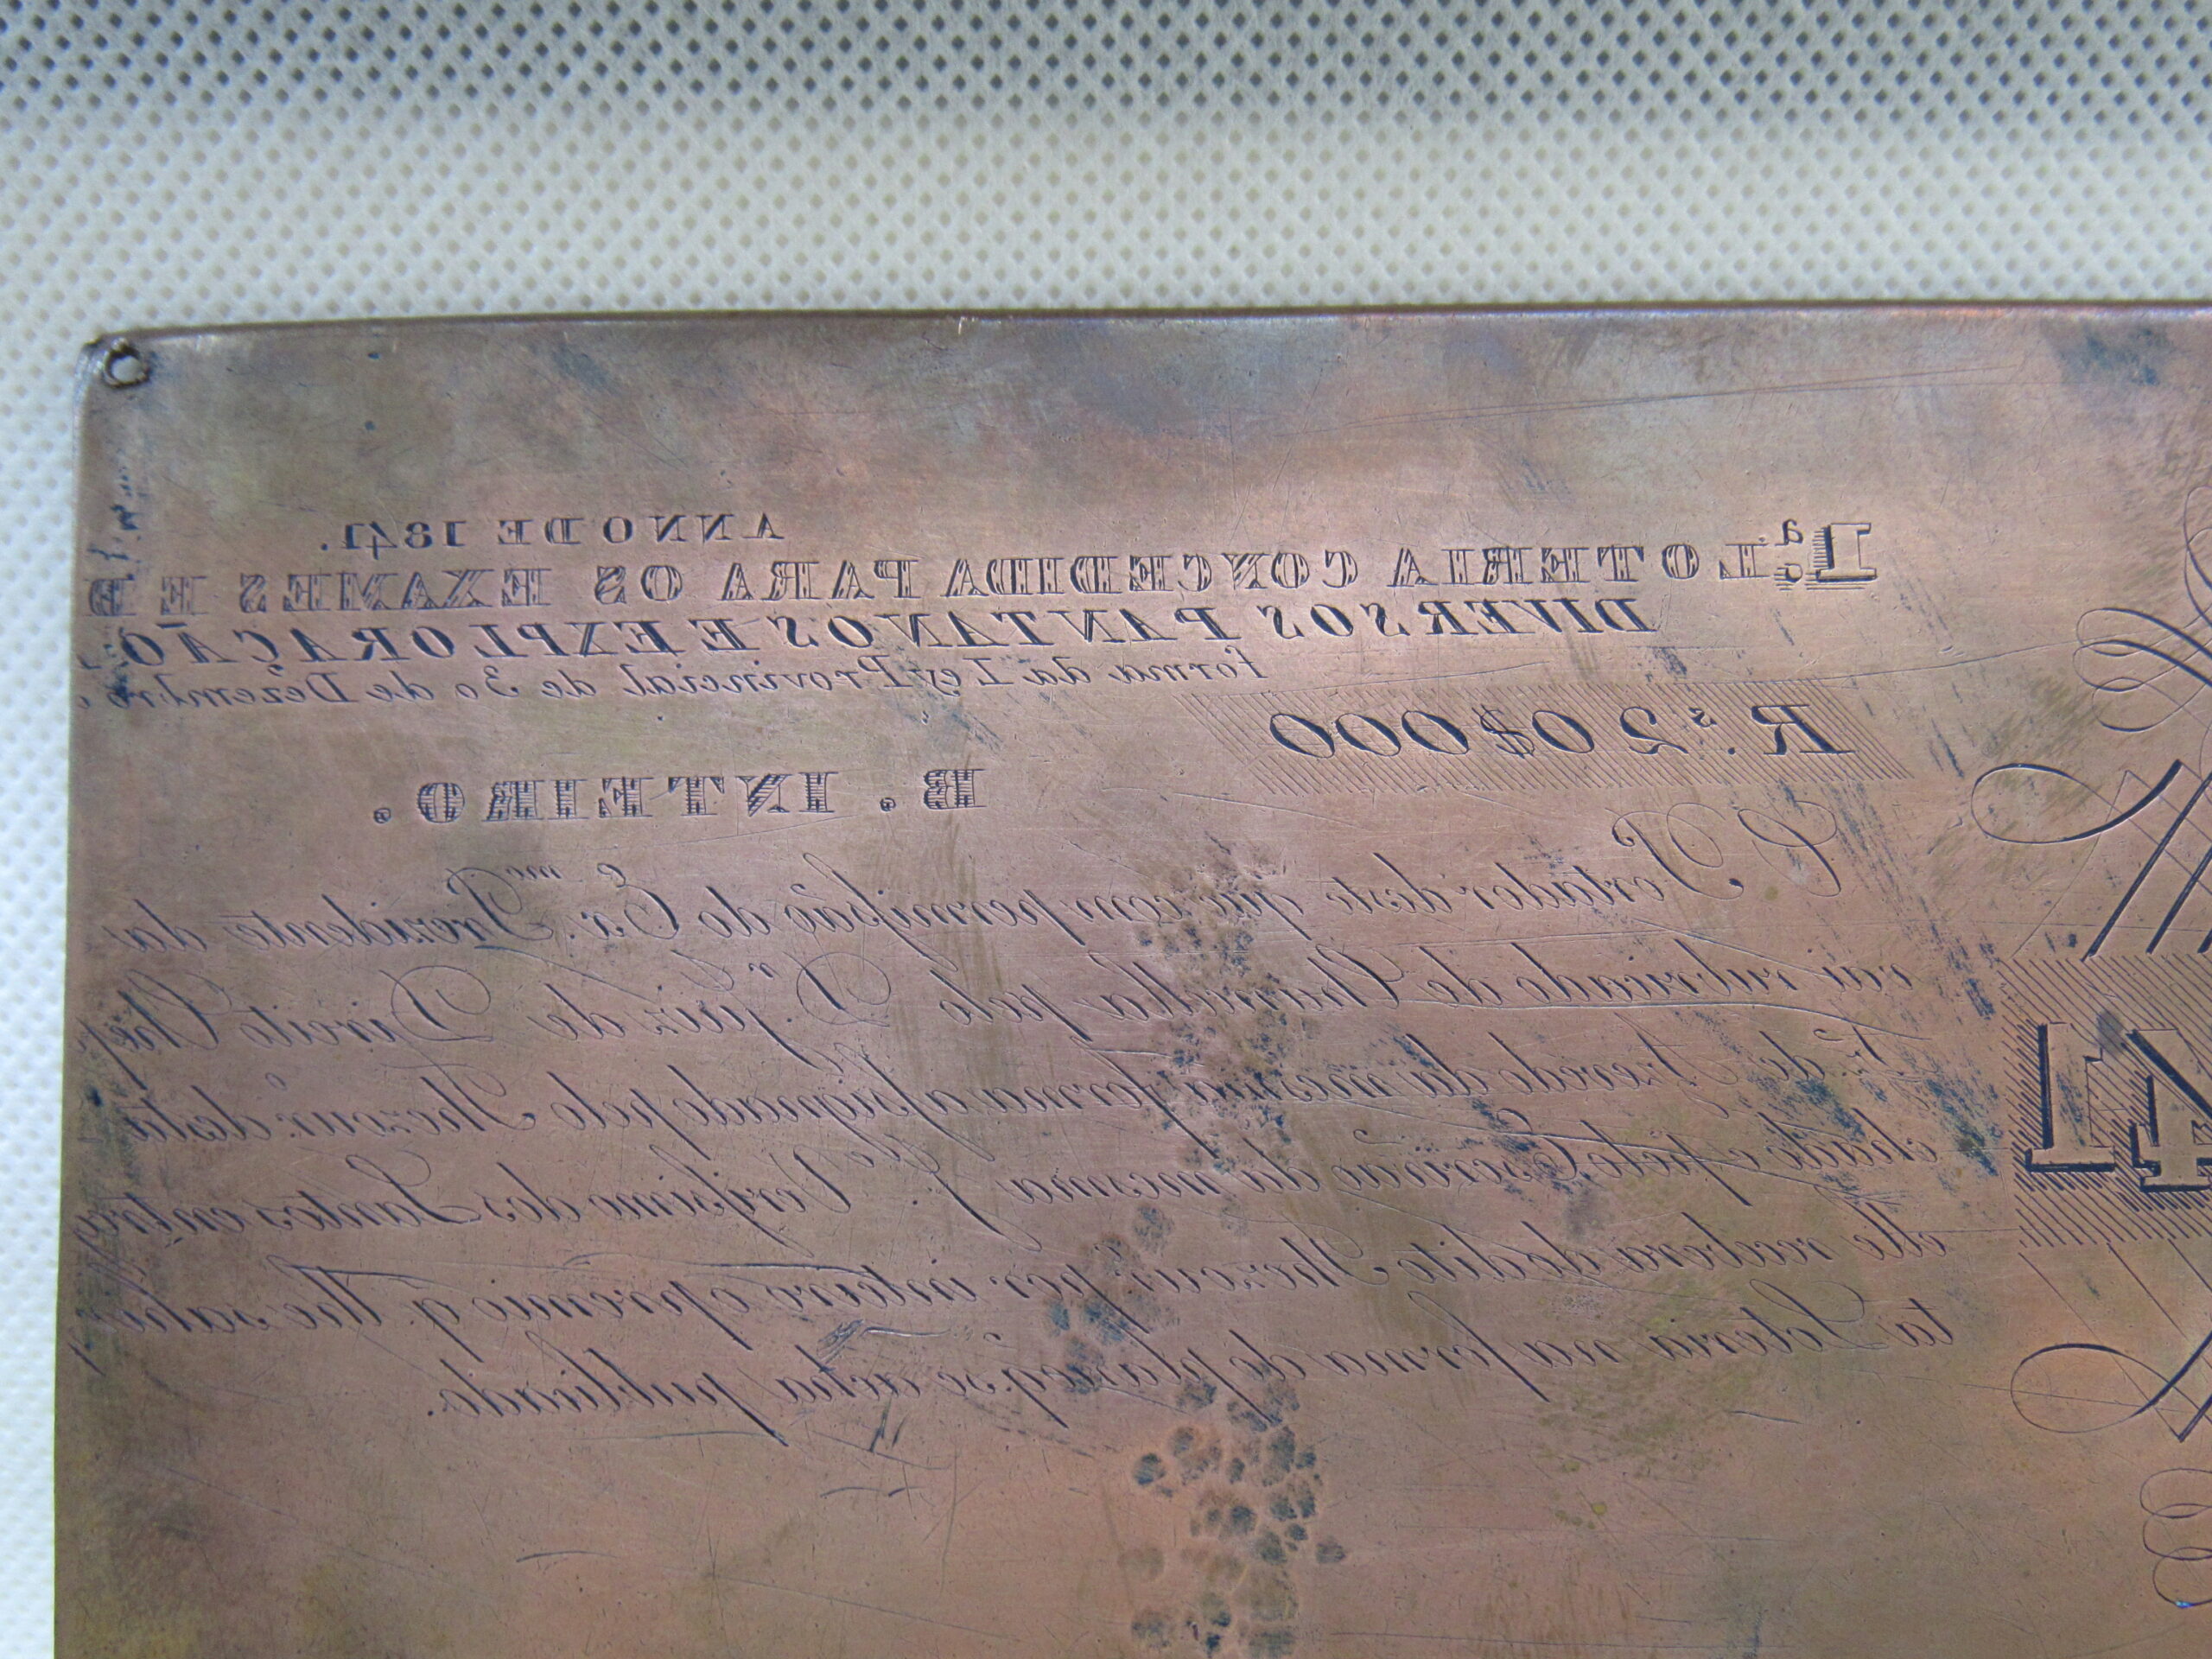 ANNO DE 1841.
1.ª LOTERIA CONCEDIDA PARA OS EXAMES E E
DIVERSOS PANTANOS E EXPLORAÇÃO
forma da Ley Provincial de 30 de Dezembro
R.s 20$000
B. INTEIRO.
O Portador deste que com permissão do Ex.mo Prezidente da
vai rubricado de Chancella pelo D.r Juiz de Direito Chef
de Azevedo da mesma forma assignado pelo Thezour. desta
cidade e pelo Escrivão da mesma J. Verissimo dos Santos
elle recebera do dito Thezour. por inteiro o premio q. lhe
ta Loteria na forma do plano q. se acha publicado.
41